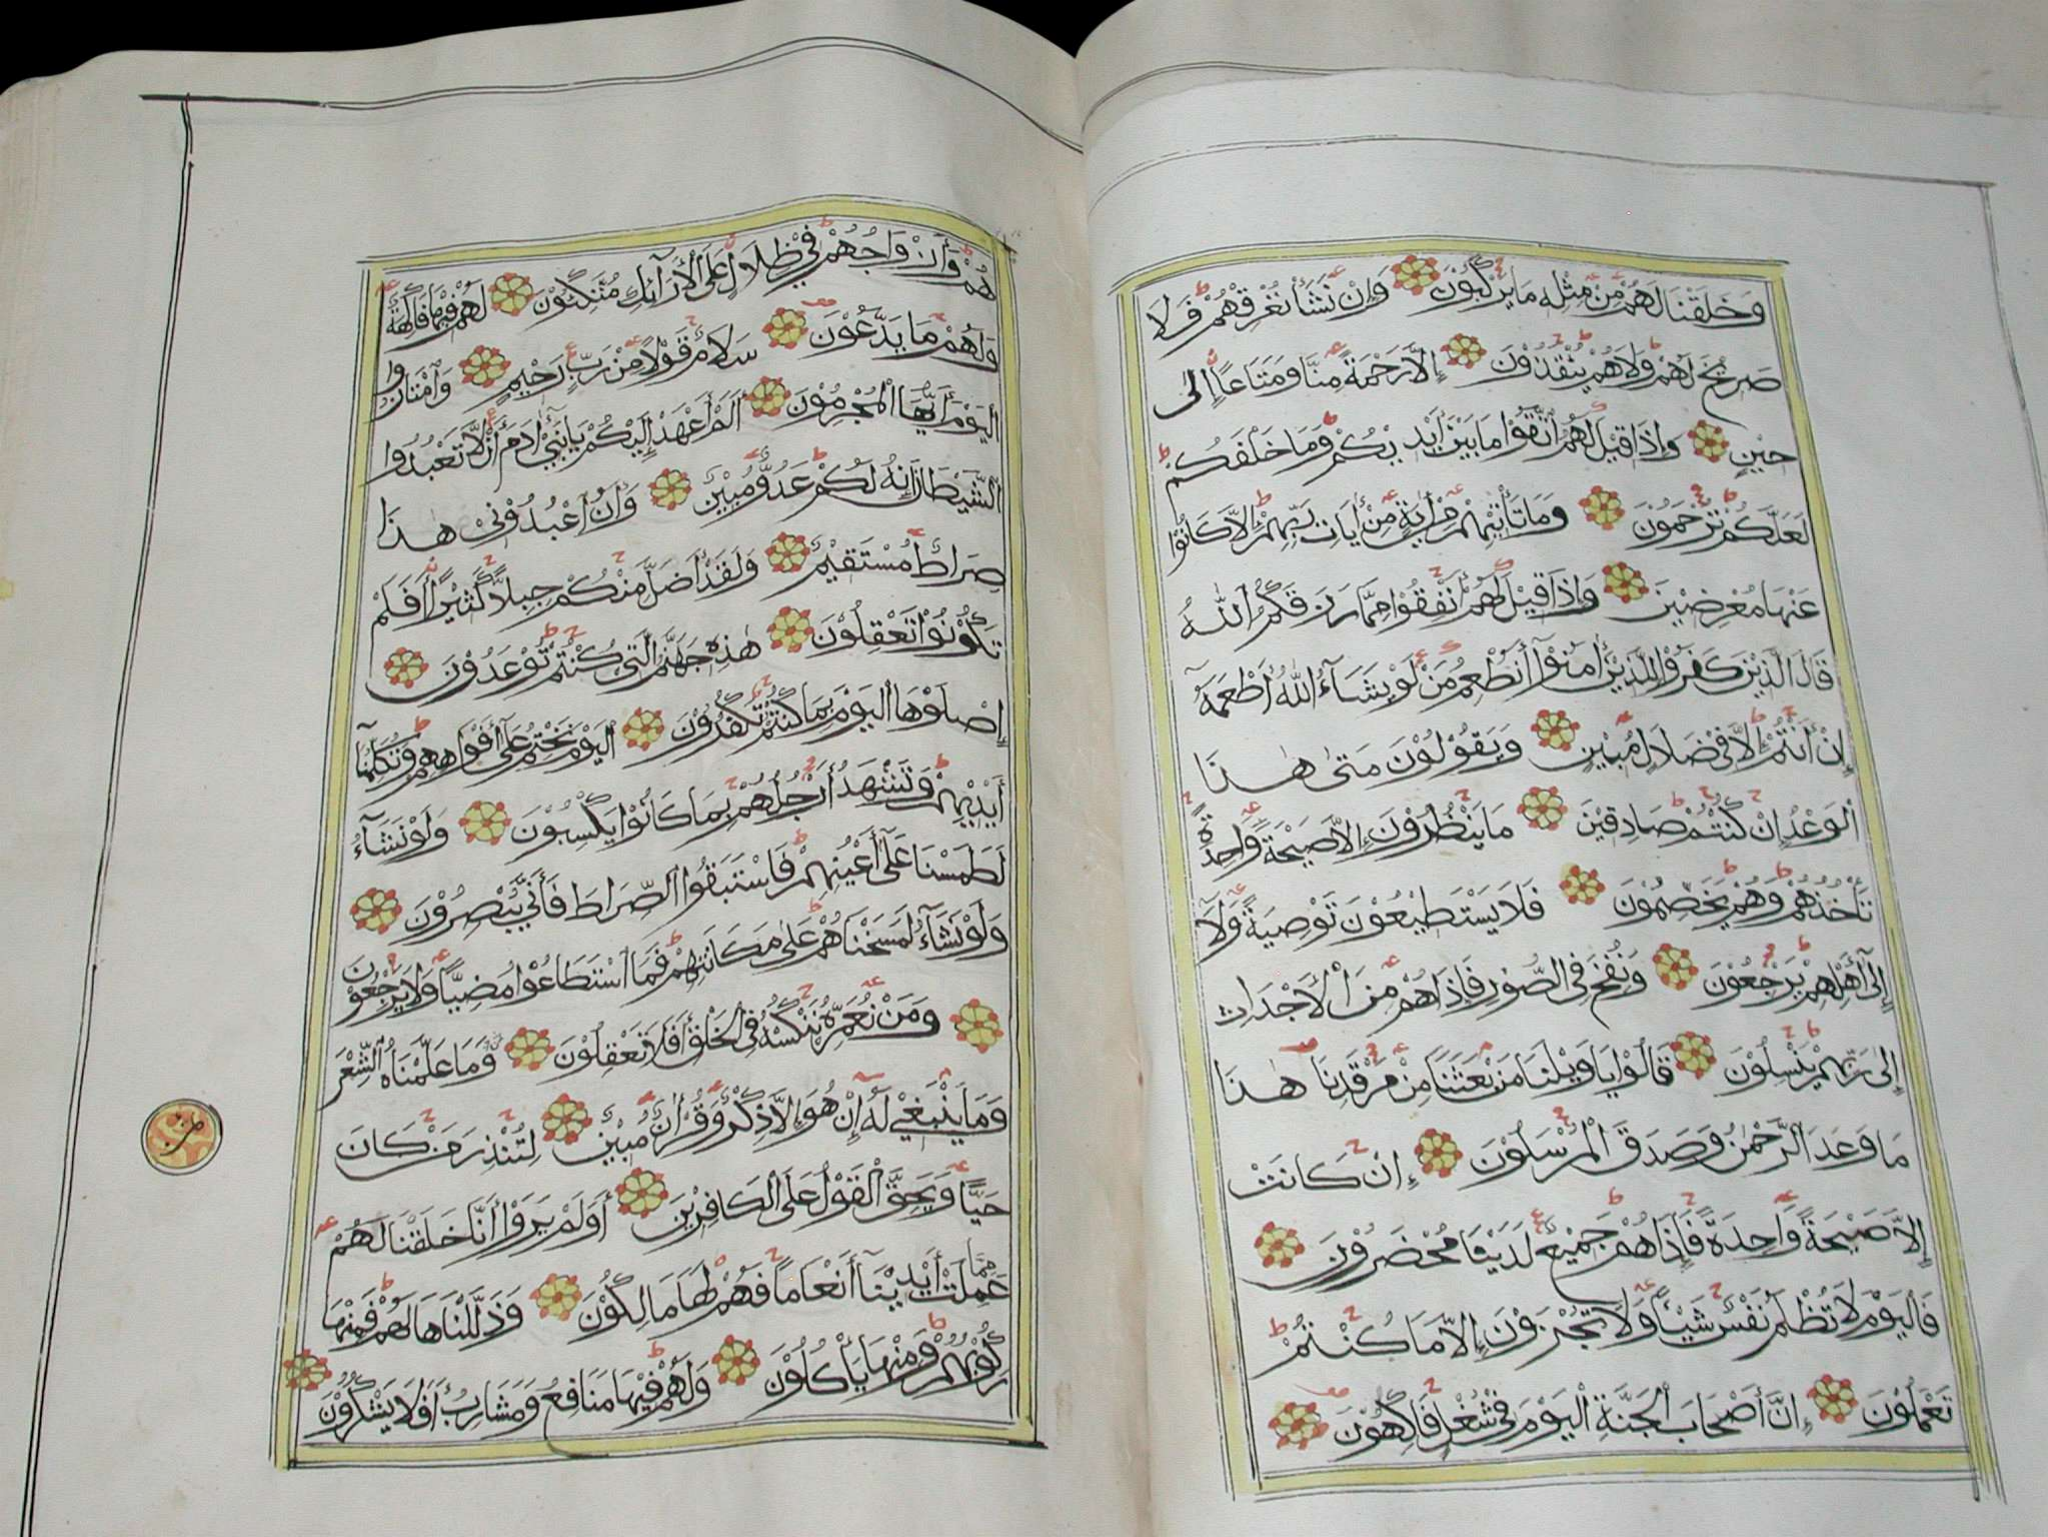 وَخَلَقْنَا لَهُمْ مِنْ مِثْلِهِ مَا يَرْكَبُوْنَ وَإِنْ نَشَأْ نُغْرِقْهُمْ فَلَا
صَرِيْخَ لَهُمْ وَلَا هُمْ يُنْقَذُوْنَ إِلَّا رَحْمَةً مِنَّا وَمَتَاعًا إِلَىٰ
حِيْنٍ وَإِذَا قِيْلَ لَهُمُ اتَّقُوْا مَا بَيْنَ أَيْدِيْكُمْ وَمَا خَلْفَكُمْ
لَعَلَّكُمْ تُرْحَمُوْنَ وَمَا تَأْتِيْهِمْ مِنْ اٰيَةٍ مِنْ اٰيَاتِ رَبِّهِمْ إِلَّا كَانُوْا
عَنْهَا مُعْرِضِيْنَ وَإِذَا قِيْلَ لَهُمْ أَنْفِقُوْا مِمَّا رَزَقَكُمُ اللّٰهُ
قَالَ الَّذِيْنَ كَفَرُوْا لِلَّذِيْنَ اٰمَنُوْا أَنُطْعِمُ مَنْ لَوْ يَشَآءُ اللّٰهُ أَطْعَمَهُ
إِنْ أَنْتُمْ إِلَّا فِي ضَلَالٍ مُبِيْنٍ وَيَقُوْلُوْنَ مَتَىٰ هٰذَا
الْوَعْدُ إِنْ كُنْتُمْ صَادِقِيْنَ مَا يَنْظُرُوْنَ إِلَّا صَيْحَةً وَاحِدَةً
تَأْخُذُهُمْ وَهُمْ يَخِصِّمُوْنَ فَلَا يَسْتَطِيْعُوْنَ تَوْصِيَةً وَلَآ
إِلَىٰٓ أَهْلِهِمْ يَرْجِعُوْنَ وَنُفِخَ فِي الصُّوْرِ فَإِذَا هُمْ مِنَ الْأَجْدَاثِ
إِلَىٰ رَبِّهِمْ يَنْسِلُوْنَ قَالُوْا يَا وَيْلَنَا مَنْ بَعَثَنَا مِنْ مَرْقَدِنَا هٰذَا
مَا وَعَدَ الرَّحْمٰنُ وَصَدَقَ الْمُرْسَلُوْنَ إِنْ كَانَتْ
إِلَّا صَيْحَةً وَاحِدَةً فَإِذَا هُمْ جَمِيْعٌ لَدَيْنَا مُحْضَرُوْنَ
فَالْيَوْمَ لَا تُظْلَمُ نَفْسٌ شَيْئًا وَلَا تُجْزَوْنَ إِلَّا مَا كُنْتُمْ
تَعْمَلُوْنَ إِنَّ أَصْحَابَ الْجَنَّةِ الْيَوْمَ فِيْ شُغُلٍ فَاكِهُوْنَ
هُمْ وَأَزْوَاجُهُمْ فِيْ ظِلَالٍ عَلَى الْأَرَآئِكِ مُتَّكِئُوْنَ لَهُمْ فِيْهَا فَاكِهَةٌ
وَلَهُمْ مَا يَدَّعُوْنَ سَلَامٌ قَوْلًا مِنْ رَبٍّ رَحِيْمٍ وَامْتَازُوا
الْيَوْمَ أَيُّهَا الْمُجْرِمُوْنَ أَلَمْ أَعْهَدْ إِلَيْكُمْ يَا بَنِيْٓ اٰدَمَ أَنْ لَا تَعْبُدُوا
الشَّيْطَانَ إِنَّهُ لَكُمْ عَدُوٌّ مُبِيْنٌ وَأَنِ اعْبُدُوْنِيْ هٰذَا
صِرَاطٌ مُسْتَقِيْمٌ وَلَقَدْ أَضَلَّ مِنْكُمْ جِبِلًّا كَثِيْرًا أَفَلَمْ
تَكُوْنُوْا تَعْقِلُوْنَ هٰذِهِ جَهَنَّمُ الَّتِيْ كُنْتُمْ تُوْعَدُوْنَ
إِصْلَوْهَا الْيَوْمَ بِمَا كُنْتُمْ تَكْفُرُوْنَ الْيَوْمَ نَخْتِمُ عَلَىٰٓ أَفْوَاهِهِمْ وَتُكَلِّمُنَآ
أَيْدِيْهِمْ وَتَشْهَدُ أَرْجُلُهُمْ بِمَا كَانُوْا يَكْسِبُوْنَ وَلَوْ نَشَآءُ
لَطَمَسْنَا عَلَىٰٓ أَعْيُنِهِمْ فَاسْتَبَقُوا الصِّرَاطَ فَأَنَّىٰ يُبْصِرُوْنَ
وَلَوْ نَشَآءُ لَمَسَخْنَاهُمْ عَلَىٰ مَكَانَتِهِمْ فَمَا اسْتَطَاعُوْا مُضِيًّا وَلَا يَرْجِعُوْنَ
وَمَنْ نُعَمِّرْهُ نُنَكِّسْهُ فِي الْخَلْقِ أَفَلَا تَعْقِلُوْنَ وَمَا عَلَّمْنَاهُ الشِّعْرَ
وَمَا يَنْبَغِيْ لَهُ إِنْ هُوَ إِلَّا ذِكْرٌ وَقُرْاٰنٌ مُبِيْنٌ لِتُنْذِرَ مَنْ كَانَ
حَيًّا وَيَحِقَّ الْقَوْلُ عَلَى الْكَافِرِيْنَ أَوَلَمْ يَرَوْا أَنَّا خَلَقْنَا لَهُمْ
مِمَّا عَمِلَتْ أَيْدِيْنَآ أَنْعَامًا فَهُمْ لَهَا مَالِكُوْنَ وَذَلَّلْنَاهَا لَهُمْ فَمِنْهَا
رَكُوْبُهُمْ وَمِنْهَا يَأْكُلُوْنَ وَلَهُمْ فِيْهَا مَنَافِعُ وَمَشَارِبُ أَفَلَا يَشْكُرُوْنَ